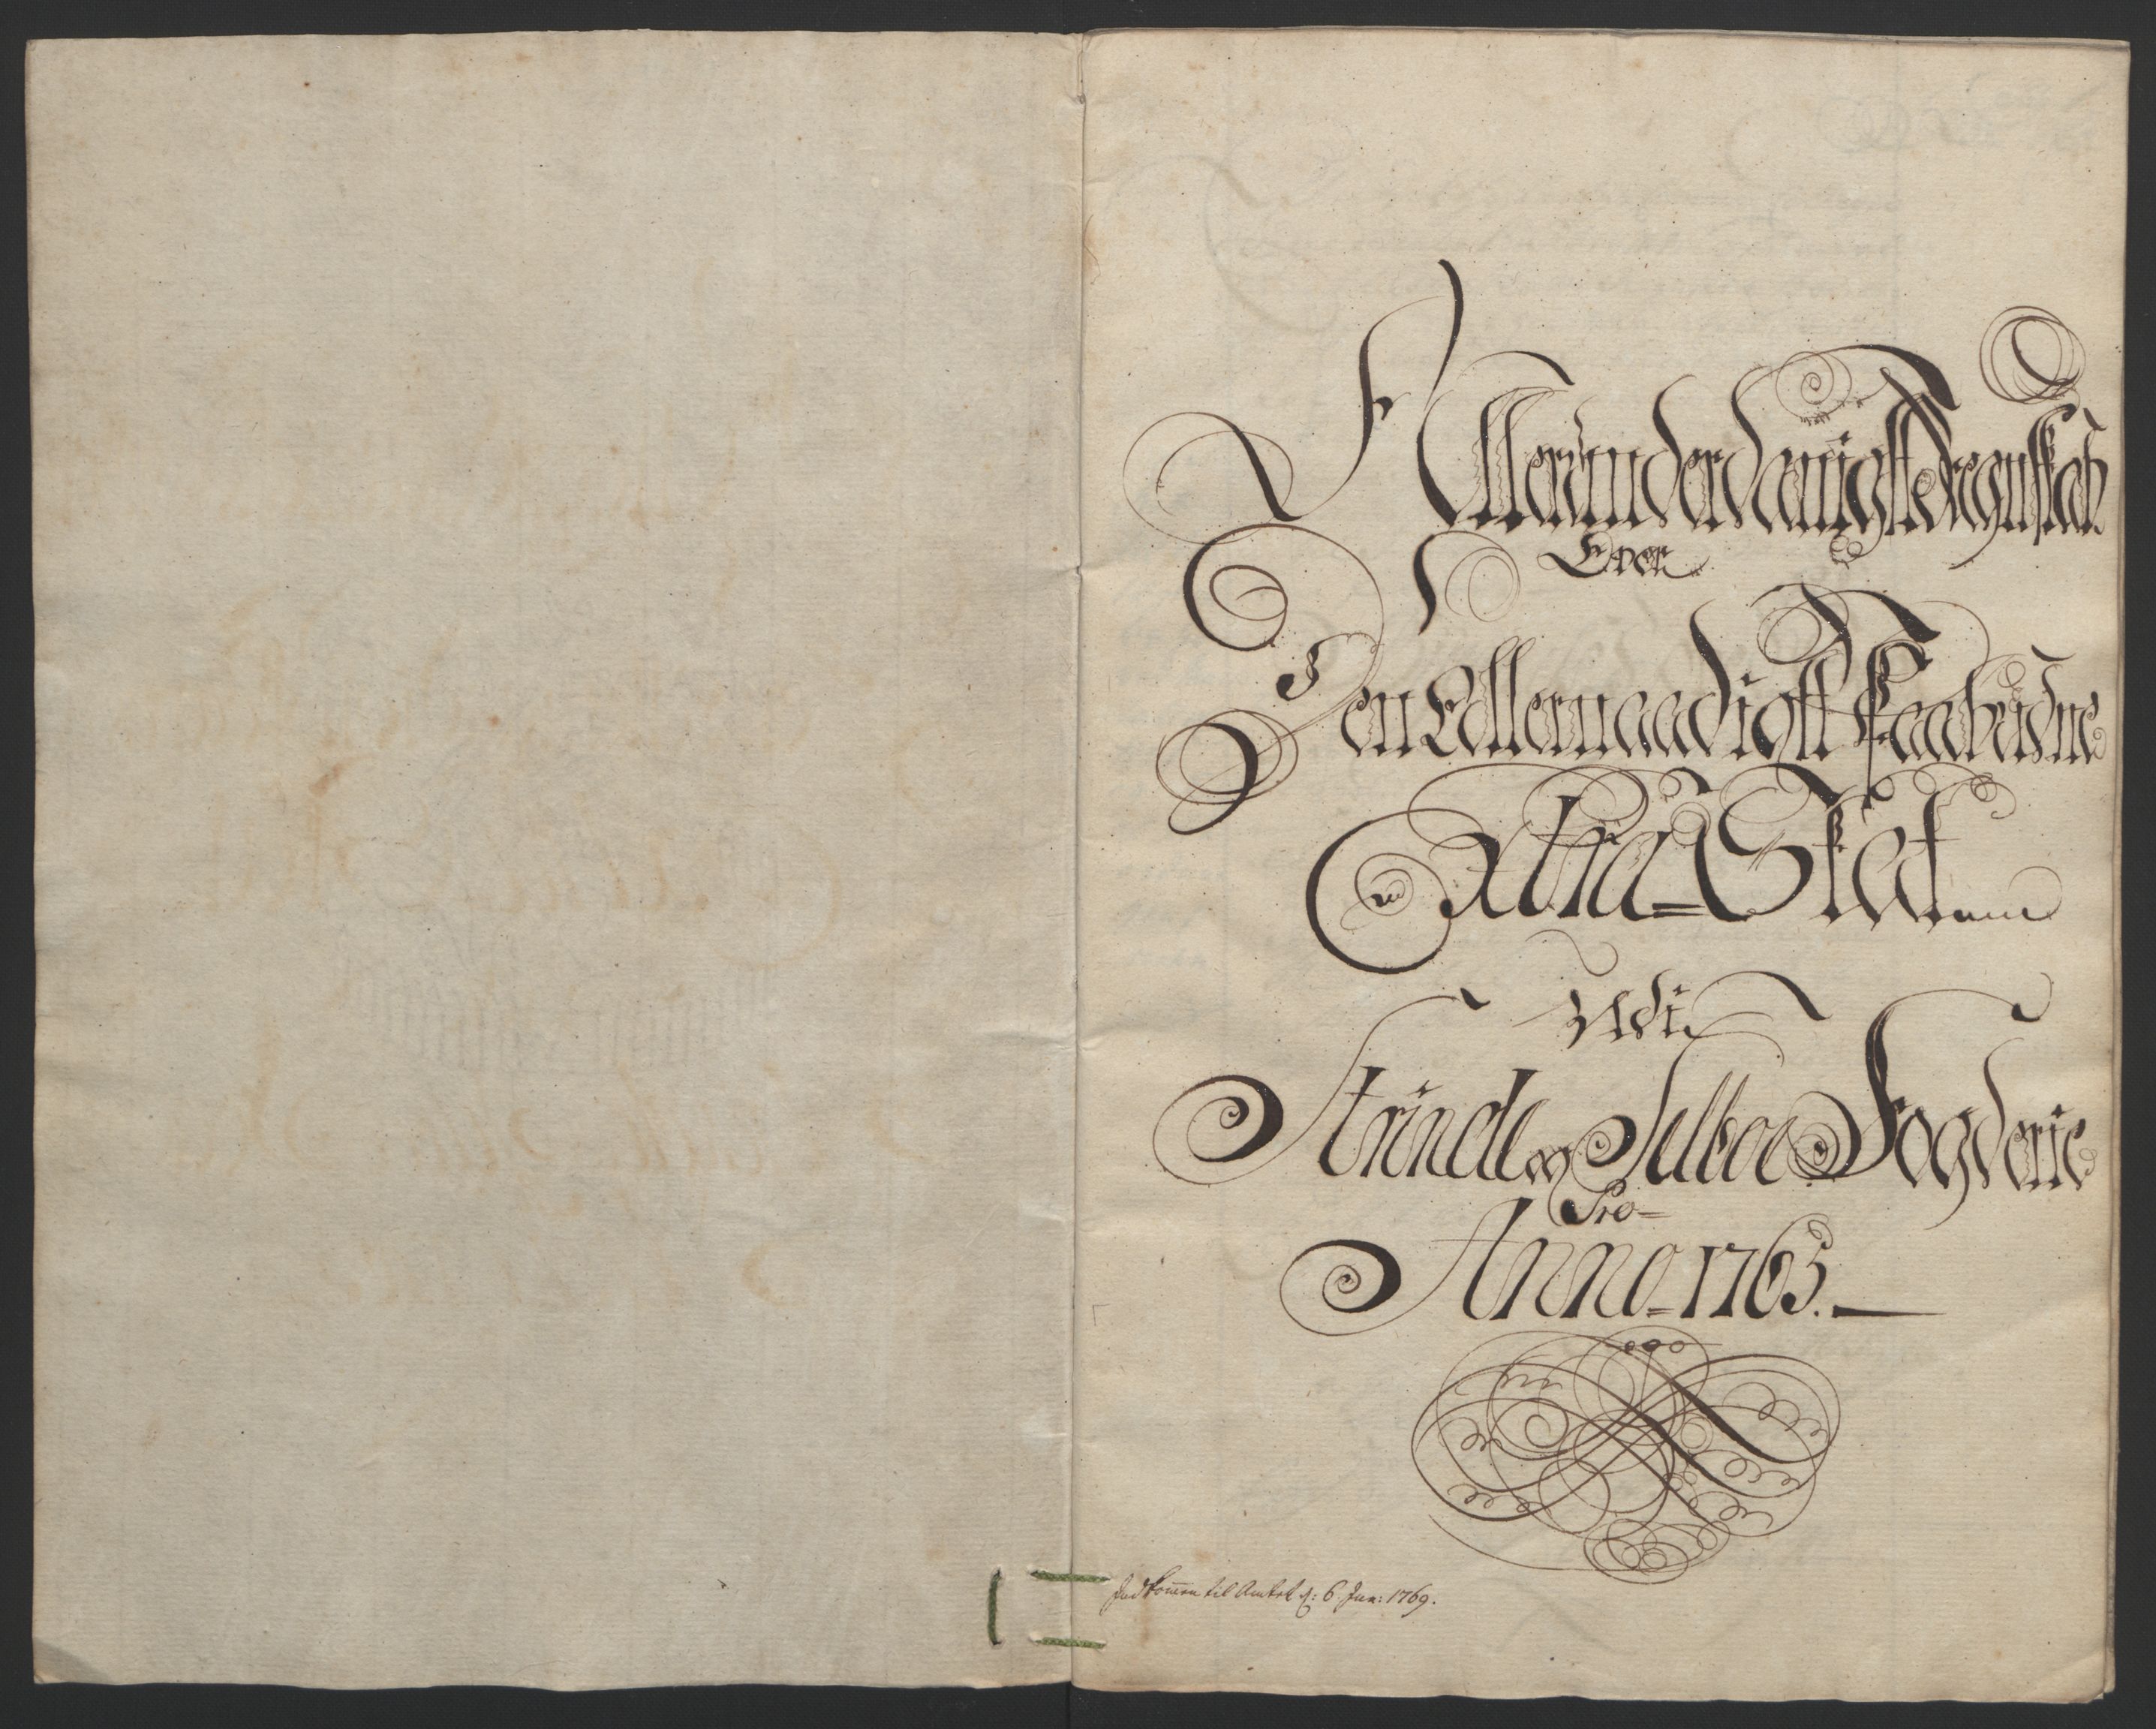 Allerunderdanigste Regnskab
Over
Den Allernaadigst Paabudne
Extra=Skat
Udi
Strinde og Selboe Fogderie
Pro=
Anno=1763.
Indkommen til Amtet d: 6 Jun: 1769.